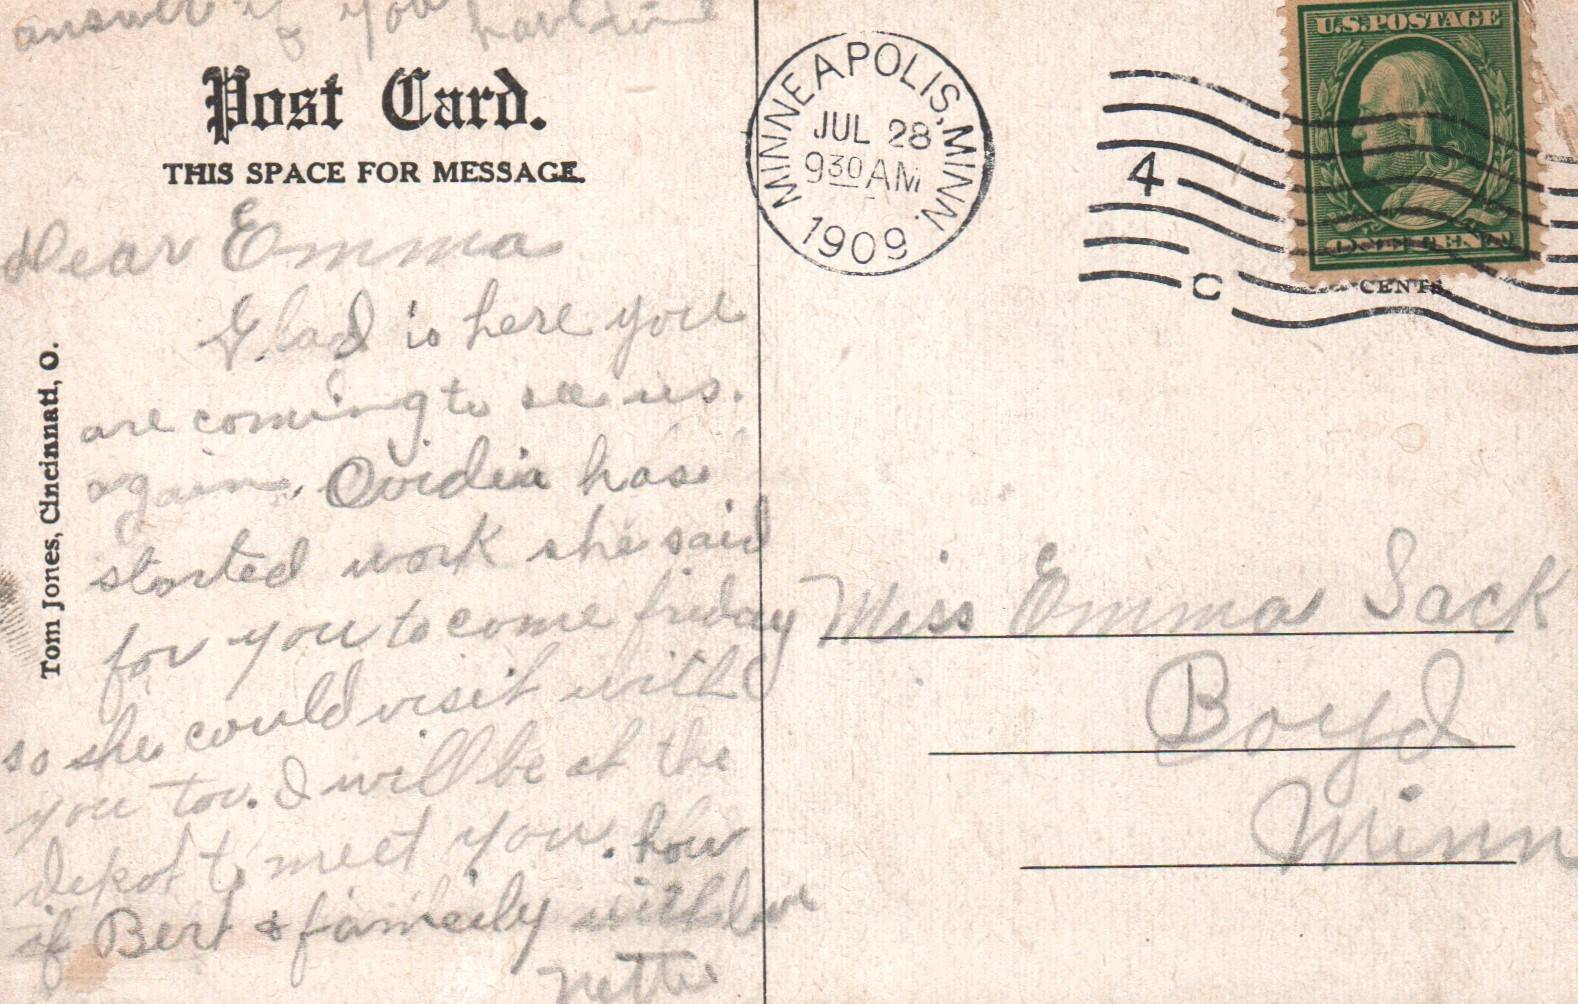 answer if you have time
Post Card.
THIS SPACE FOR MESSAGE.
Dear Emma
Glad is here you
are coming to see us.
again. Ovidia has
started work she said
for you to come friday
so she could visit with
you too. I will be at the
depot to meet you. how
is Bert & family with love
Nettie
Tom Jones, Cincinnati, O.
MINNEAPOLIS, MINN.
JUL 28
9 30 AM
1909
4
C
U.S. POSTAGE
ONE CENT
CENTS
Miss Emma Sack
Boyd
Minn